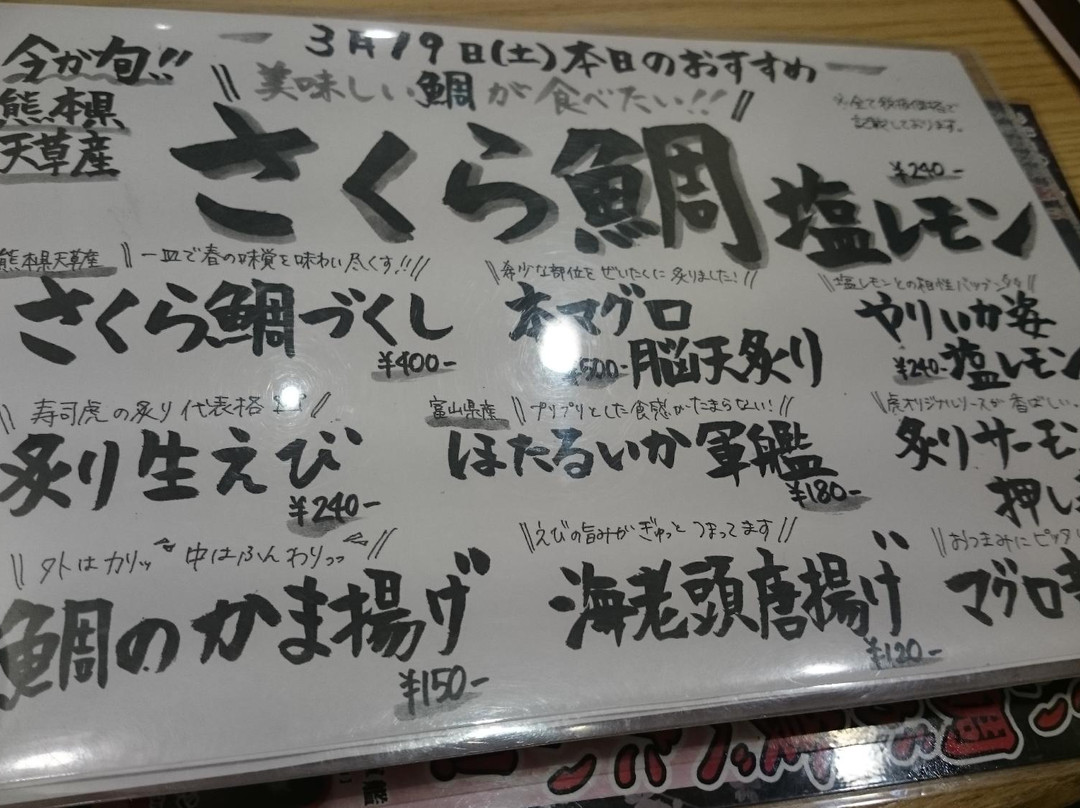 今が旬!!
熊本県
天草産
3月19日(土)本日のおすすめ
美味しい鯛が食べたい!!
※全て税抜価格で
記載しております。
さくら鯛 塩レモン
¥240-
熊本県天草産
一皿で春の味覚を味わい尽くす!!
さくら鯛づくし
¥400-
希少な部位をぜいたくに炙りました!
本マグロ
脳天炙り
塩レモンとの相性バツグン
やりいか姿
¥240- 塩レモン
寿司虎の炙り代表格
炙り生えび
¥240-
富山県産
プリプリとした食感がたまらない!
ほたるいか軍艦
¥180-
虎オリジナルソースが香ばしい
炙りサーモン
押し
外はカリッ 中はふんわりっっ
鯛のかま揚げ
¥150-
えびの旨みがぎゅっとつまってます
海老頭唐揚げ
¥120-
おつまみにピッタリ
マグロ